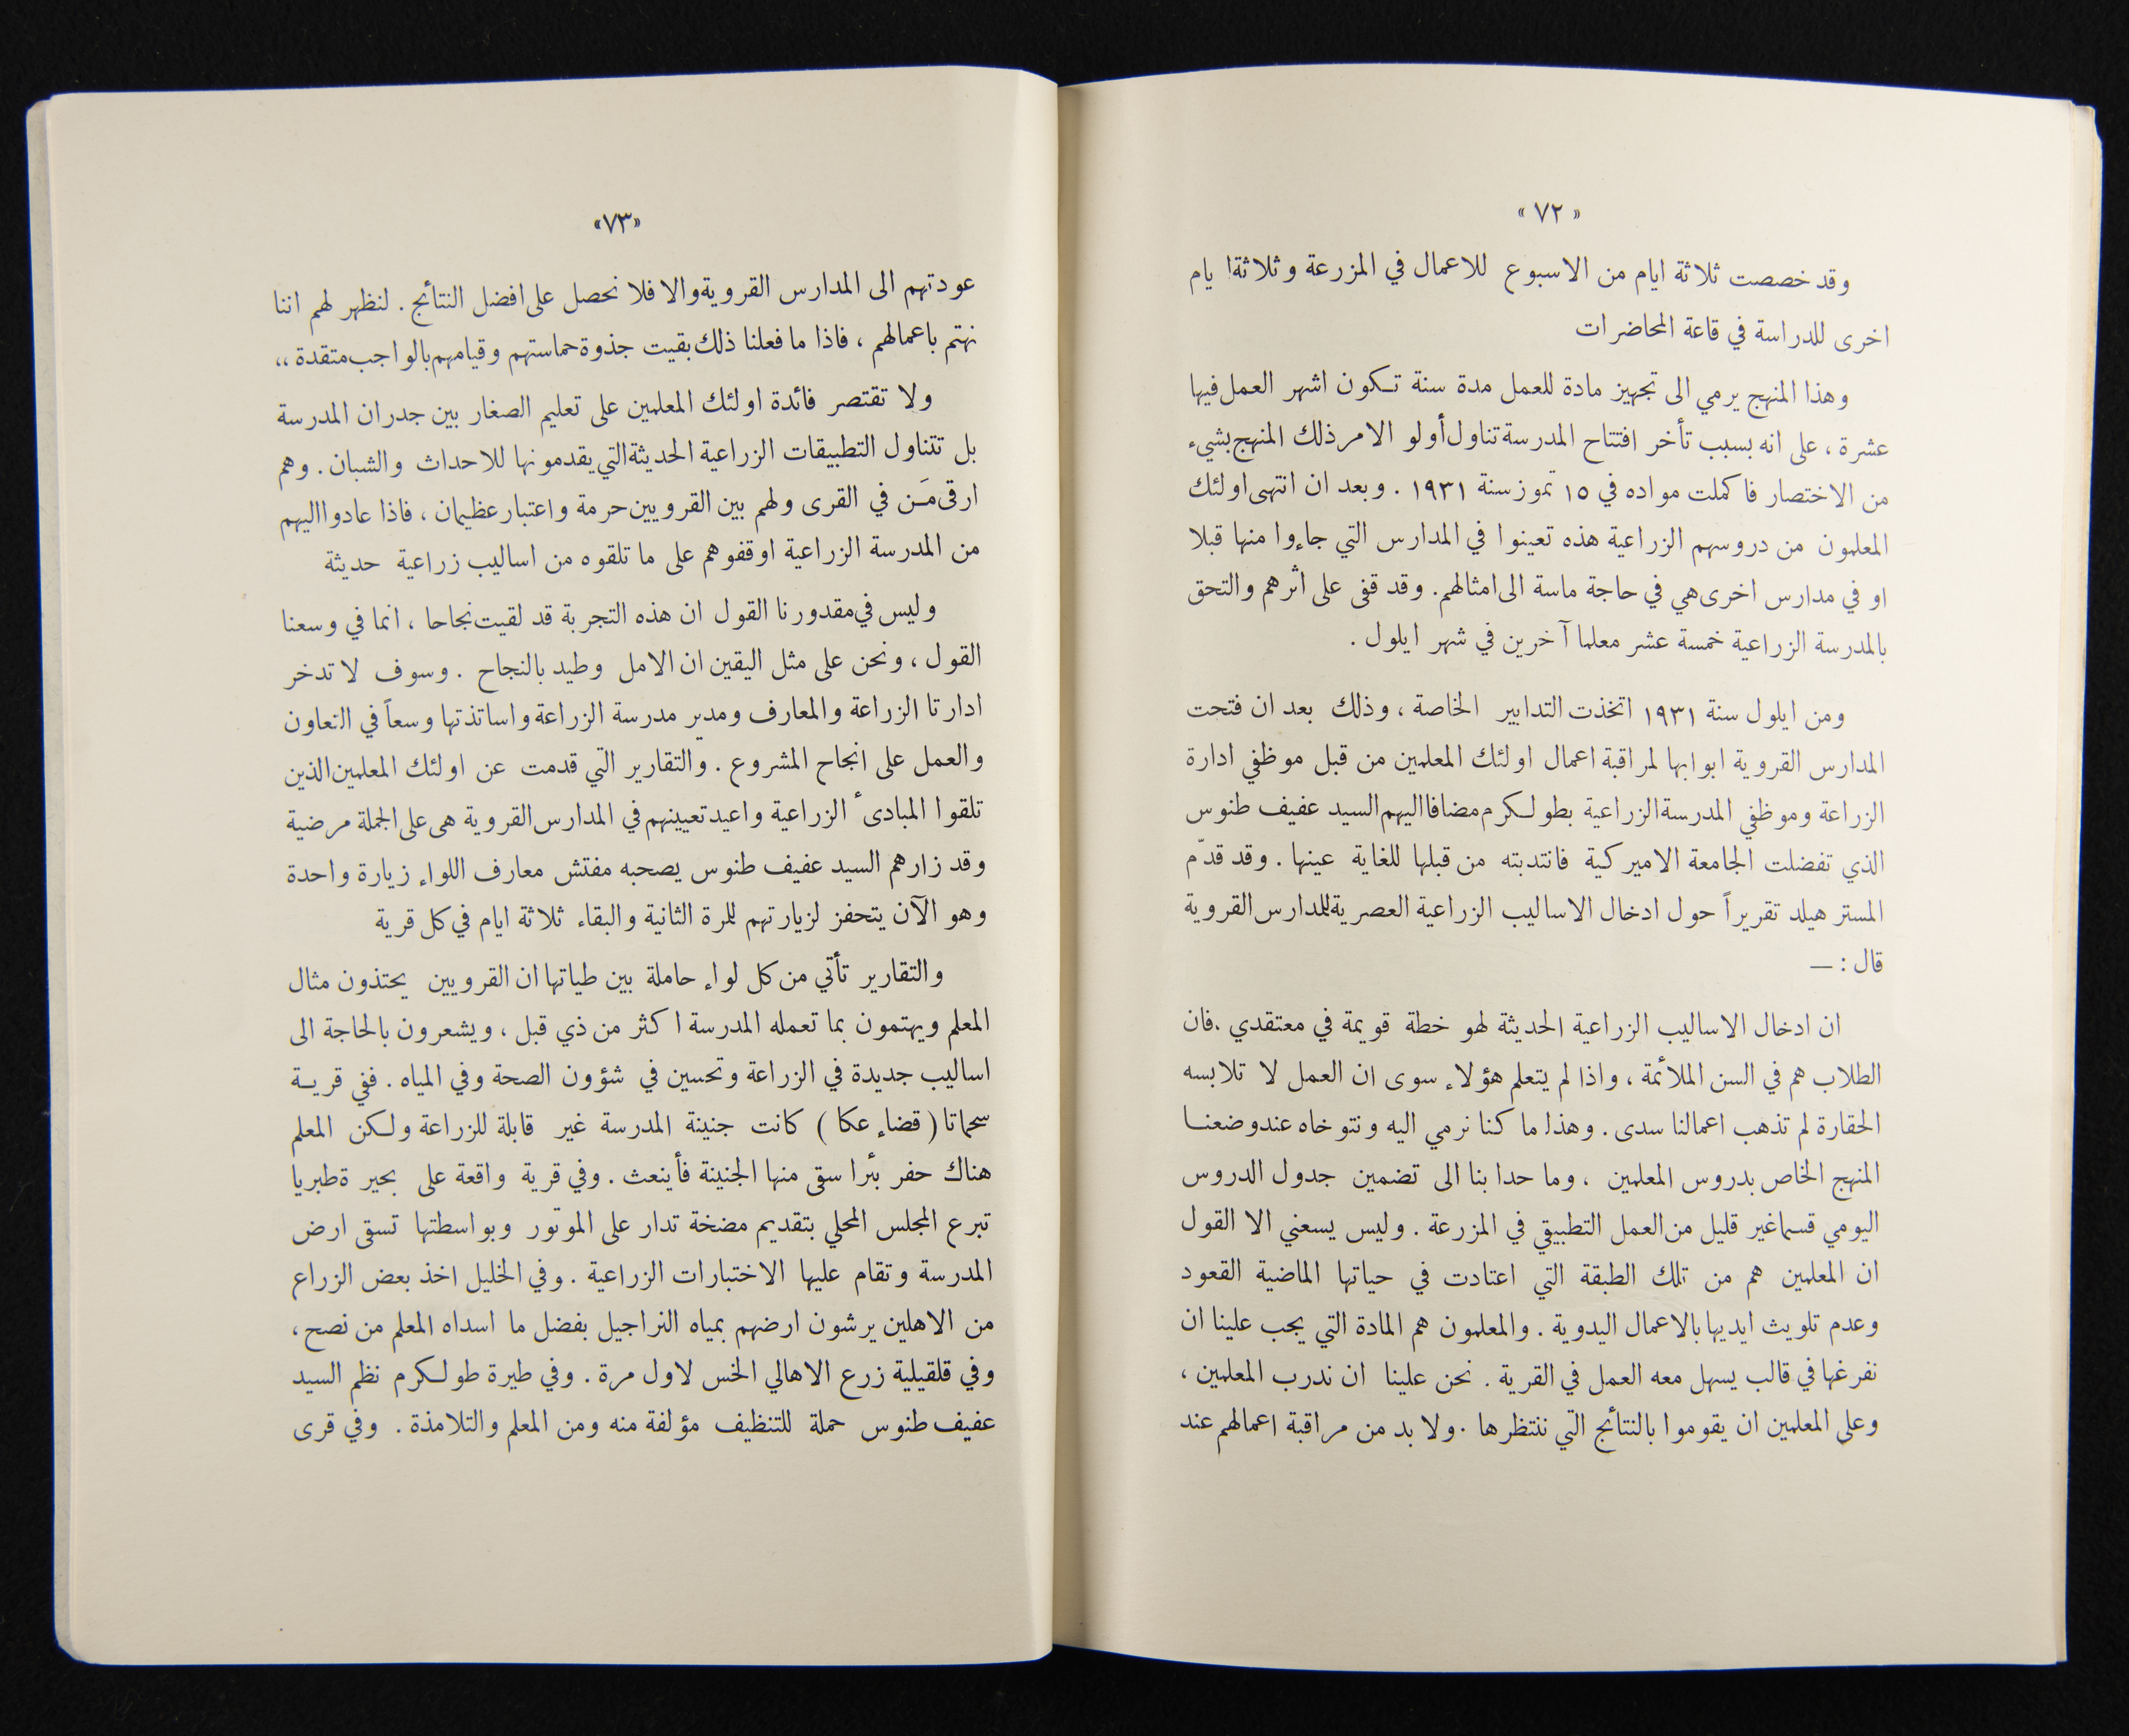 « ٧٢ »
وقد خصصت ثلاثة ايام من الاسبوع للاعمال في المزرعة وثلاثة ايام
اخرى للدراسة في قاعة المحاضرات
وهذا المنهج يرمي الى تجهيز مادة للعمل مدة سنة تكون اشهر العمل فيها
عشرة ، على انه بسبب تأخر افتتاح المدرسة تناول أولو الامر ذلك المنهج بشيء
من الاختصار فاكملت مواده في ١٥ تموز سنة ١٩٣١ . وبعد ان انتهى اولئك
المعلمون من دروسهم الزراعية هذه تعينوا في المدارس التي جاءوا منها قبلا
او في مدارس اخرى هي في حاجة ماسة الى امثالهم. وقد قفى على اثرهم والتحق
بالمدرسة الزراعية خمسة عشر معلما آخرين في شهر ايلول .
ومن ايلول سنة ١٩٣١ اتخذت التدابير الخاصة ، وذلك بعد ان فتحت
المدارس القروية ابوابها لمراقبة اعمال اولئك المعلمين من قبل موظفي ادارة
الزراعة وموظفي المدرسة الزراعية بطولكرم مضافا اليهم السيد عفيف طنوس
الذي تفضلت الجامعة الاميركية فانتدبته من قبلها للغاية عينها . وقد قدّم
المستر هيلد تقريراً حول ادخال الاساليب الزراعية العصرية للمدارس القروية
قال : —
ان ادخال الاساليب الزراعية الحديثة لهو خطة قويمة في معتقدي .فان
الطلاب هم في السن الملائمة ، واذا لم يتعلم هؤلاء سوى ان العمل لا تلابسه
الحقارة لم تذهب اعمالنا سدى . وهذا ما كنا نرمي اليه ونتوخاه عند وضعنا
المنهج الخاص بدروس المعلمين ، وما حدا بنا الى تضمين جدول الدروس
اليومي قسما غير قليل من العمل التطبيقي في المزرعة . وليس يسعني الا القول
ان المعلمين هم من تلك الطبقة التي اعتادت في حياتها الماضية القعود
وعدم تلويث ايديها بالاعمال اليدوية . والمعلمون هم المادة التي يجب علينا ان
نفرغها في قالب يسهل معه العمل في القرية . نحن علينا ان ندرب المعلمين ،
وعلى المعلمين ان يقوموا بالنتائج التي ننتظرها . ولا بد من مراقبة اعمالهم عند
«٧٣»
عودتهم الى المدارس القروية والا فلا نحصل على افضل النتائج . لنظهر لهم اننا
نهتم باعمالهم ، فاذا ما فعلنا ذلك بقيت جذوة حماستهم وقيامهم بالواجب متقدة ،،
ولا تقتصر فائدة اولئك المعلمين على تعليم الصغار بين جدران المدرسة
بل تتناول التطبيقات الزراعية الحديثة التي يقدمونها للاحداث والشبان . وهم
ارقى مَن في القرى ولهم بين القرويين حرمة واعتبار عظيمان ، فاذا عادوا اليهم
من المدرسة الزراعية اوقفوهم على ما تلقوه من اساليب زراعية حديثة
وليس في مقدورنا القول ان هذه التجربة قد لقيت نجاحا ، انما في وسعنا
القول ، ونحن على مثل اليقين ان الامل وطيد بالنجاح . وسوف لا تدخر
ادارتا الزراعة والمعارف ومدير مدرسة الزراعة واساتذتها وسعاً في التعاون
والعمل على انجاح المشروع . والتقارير التي قدمت عن اولئك المعلمين الذين
تلقوا المبادىء الزراعية واعيد تعيينهم في المدارس القروية هى على الجملة مرضية
وقد زارهم السيد عفيف طنوس يصحبه مفتش معارف اللواء زيارة واحدة
وهو الآن يتحفز لزيارتهم للمرة الثانية والبقاء ثلاثة ايام في كل قرية
والتقارير تأتي من كل لواء حاملة بين طياتها ان القرويين يحتذون مثال
المعلم ويهتمون بما تعمله المدرسة اكثر من ذي قبل ، ويشعرون بالحاجة الى
اساليب جديدة في الزراعة وتحسين في شؤون الصحة وفي المياه . ففي قرية
سحماتا ( قضاء عكا ) كانت جنينة المدرسة غير قابلة للزراعة ولكن المعلم
هناك حفر بئرا سقى منها الجنينة فأينعث . وفي قرية واقعة على بحير ةطبريا
تبرع المجلس المحلي بتقديم مضخة تدار على الموتور وبواسطتها تسقى ارض
المدرسة وتقام عليها الاختبارات الزراعية . وفي الخليل اخذ بعض الزراع
من الاهلين يرشون ارضهم بمياه النراجيل بفضل ما اسداه المعلم من نصح ،
وفي قلقيلية زرع الاهالي الخس لاول مرة . وفي طيرة طولكرم نظم السيد
عفيف طنوس حملة للتنظيف مؤلفة منه ومن المعلم والتلامذة . وفي قرى